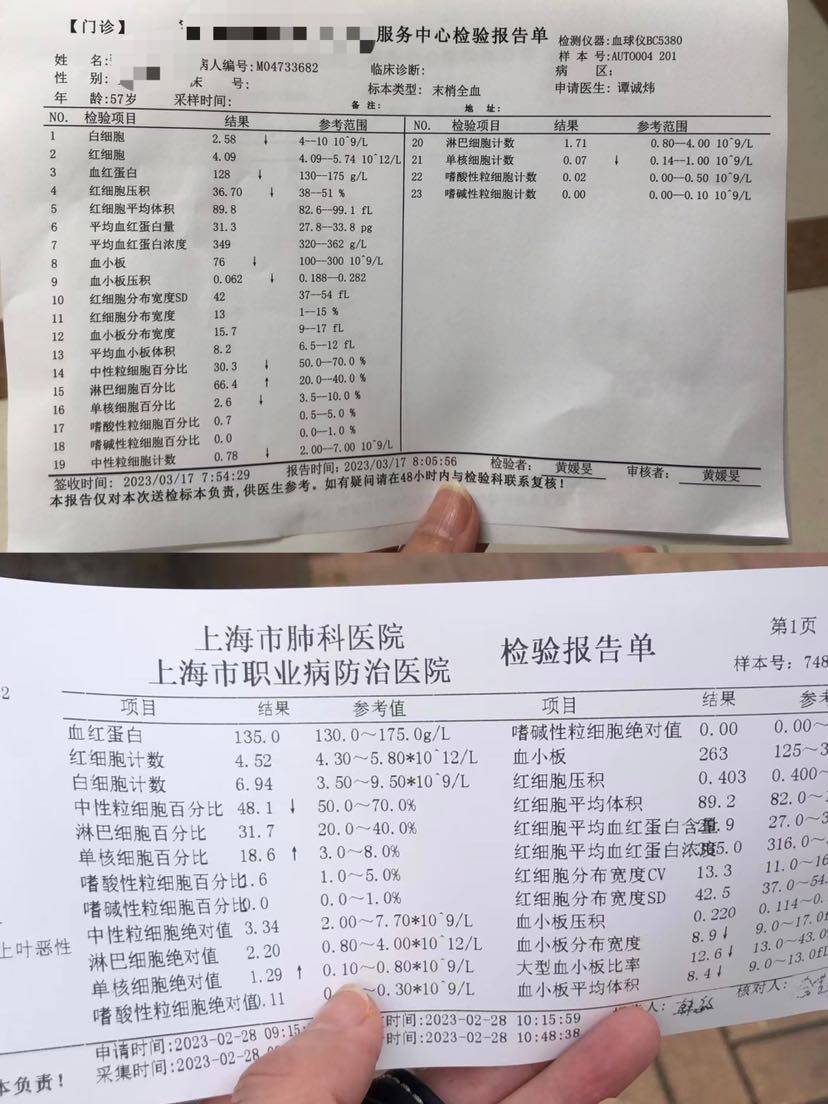 【门诊】 服务中心检验报告单 检测仪器:血球仪BC5380
姓 名: 病人编号:M04733682 临床诊断: 样 本 号:AUTO004 201
性 别: 床 号: 标本类型: 末梢全血 病 区:
年 龄:57岁 采样时间: 备 注: 地 址: 申请医生: 谭诚炜
NO. 检验项目 结果 参考范围 NO. 检验项目 结果 参考范围
1 白细胞 2.58 ↓ 4--10 10^9/L 20 淋巴细胞计数 1.71 0.80--4.00 10^9/L
2 红细胞 4.09 4.09--5.74 10^12/L 21 单核细胞计数 0.07 ↓ 0.14--1.00 10^9/L
3 血红蛋白 128 ↓ 130--175 g/L 22 嗜酸性粒细胞计数 0.02 0.00--0.50 10^9/L
4 红细胞压积 36.70 ↓ 38--51 % 23 嗜碱性粒细胞计数 0.00 0.00--0.10 10^9/L
5 红细胞平均体积 89.8 82.6--99.1 fL
6 平均血红蛋白量 31.3 27.8--33.8 pg
7 平均血红蛋白浓度 349 320--362 g/L
8 血小板 76 ↓ 100--300 10^9/L
9 血小板压积 0.062 ↓ 0.188--0.282
10 红细胞分布宽度SD 42 37--54 fL
11 红细胞分布宽度 13 1--15 %
12 血小板分布宽度 15.7 9--17 fL
13 平均血小板体积 8.2 6.5--12 fL
14 中性粒细胞百分比 30.3 ↓ 50.0--70.0 %
15 淋巴细胞百分比 66.4 ↑ 20.0--40.0 %
16 单核细胞百分比 2.6 ↓ 3.5--10.0 %
17 嗜酸性粒细胞百分比 0.7 0.5--5.0 %
18 嗜碱性粒细胞百分比 0.0 0.0--1.0 %
19 中性粒细胞计数 0.78 ↓ 2.00--7.00 10^9/L
签收时间: 2023/03/17 7:54:29 报告时间:2023/03/17 8:05:56 检验者: 黄媛旻 审核者: 黄媛旻
本报告仅对本次送检标本负责,供医生参考。如有疑问请在48小时内与检验科联系复核!
上海市肺科医院
上海市职业病防治医院 检验报告单 第1页
样本号: 748
2
项目 结果 参考值 项目 结果 参考
血红蛋白 135.0 130.0~175.0g/L 嗜碱性粒细胞绝对值 0.00 0.00~
红细胞计数 4.52 4.30~5.80*10^12/L 血小板 263 125~3
白细胞计数 6.94 3.50~9.50*10^9/L 红细胞压积 0.403 0.400~
中性粒细胞百分比 48.1 ↓ 50.0~70.0% 红细胞平均体积 89.2 82.0~1
淋巴细胞百分比 31.7 20.0~40.0% 红细胞平均血红蛋白含量 .9 27.0~3
单核细胞百分比 18.6 ↑ 3.0~8.0% 红细胞平均血红蛋白浓度 5.0 316.0~3
嗜酸性粒细胞百分比 1.6 1.0~5.0% 红细胞分布宽度CV 13.3 11.0~16
嗜碱性粒细胞百分比 0.0 0.0~1.0% 红细胞分布宽度SD 42.5 37.0~54.
中性粒细胞绝对值 3.34 2.00~7.70*10^9/L 血小板压积 0.220 0.114~0.
上叶恶性 淋巴细胞绝对值 2.20 0.80~4.00*10^12/L 血小板分布宽度 8.9↓ 9.0~17.0f
单核细胞绝对值 1.29 ↑ 0.10~0.80*10^9/L 大型血小板比率 12.6↓ 13.0~43.0
嗜酸性粒细胞绝对值 0.11 ~0.30*10^9/L 血小板平均体积 8.4↓ 9.0~13.0fL
申请时间:2023-02-28 09:15 时间:2023-02-28 10:15:59 人: 核对人:
本负责! 采集时间:2023-02-28 时间:2023-02-28 10:48:38